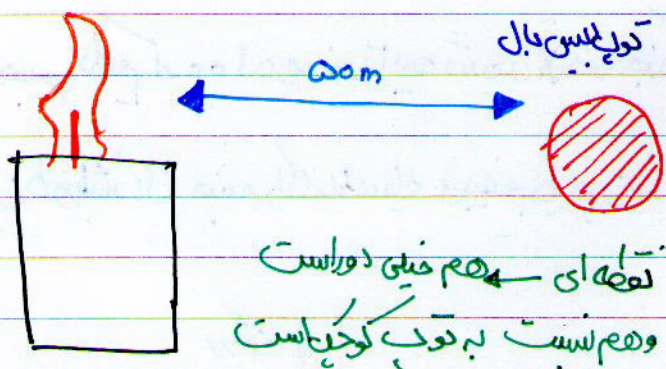 توپ بیس بال
۵۰m
نقطه ای ← هم خیلی دور است
و هم نسبت به توپ کوچک است